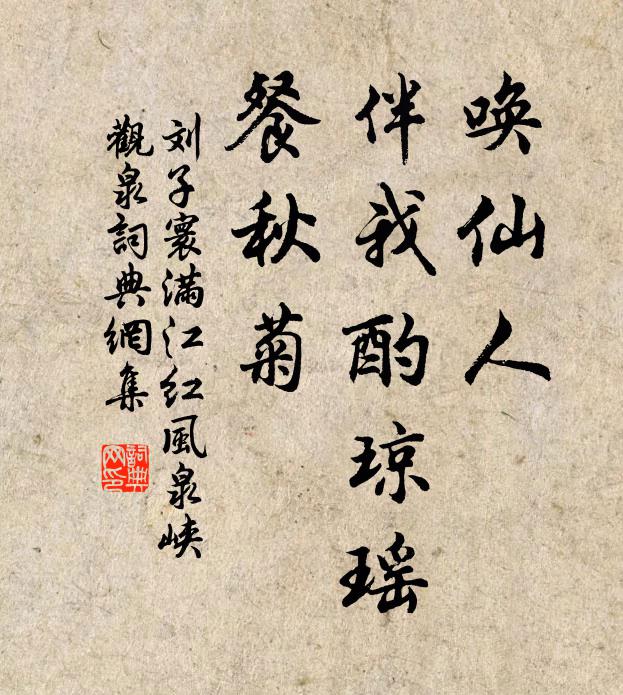 唤仙人
伴我酌琼瑶
餐秋菊
刘子寰满江红風泉峡
觀泉詞典網集
詞典
网印